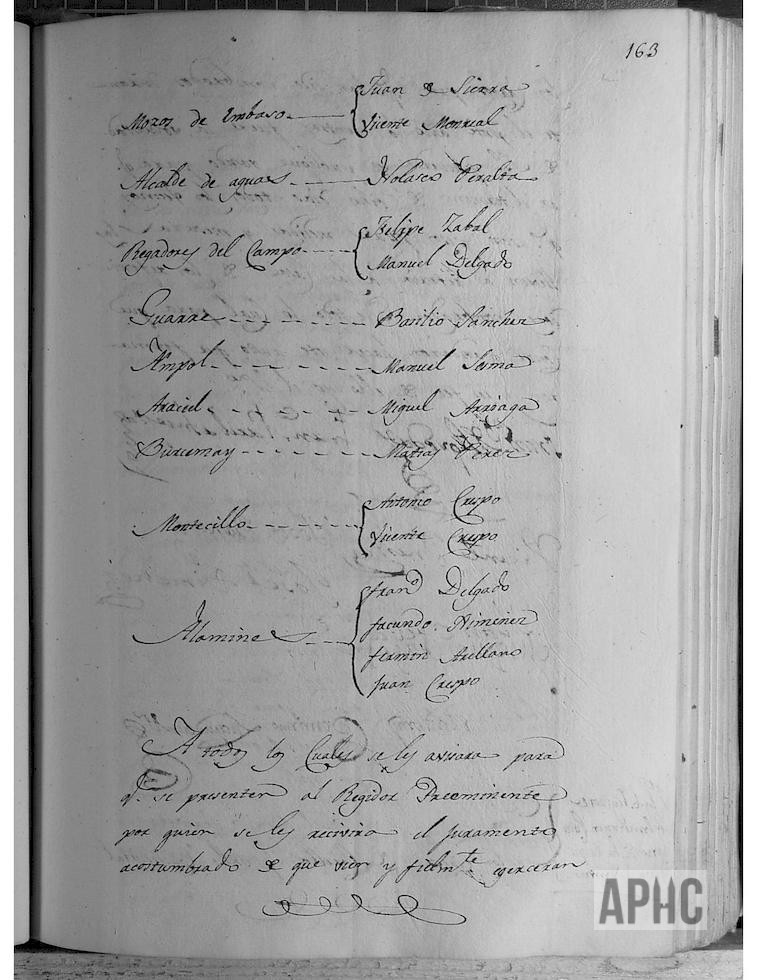 163
Mozos de Embaso { Juan de Sierra
Vizente Monreal
Alcalde de aguas Nolasco Peralta
Regadores del Campo { Felipe Zabal
Manuel Delgado
Guarre Basilio Sanchez
Ampol Manuel Sesma
Araciel Miguel Arroaga
Burcemay Matias Perez
Montecillo { Antonio Crespo
Vicente Crespo
Alamines { Franco Delgado
Facundo Ximenez
Fermin Arellano
Juan Crespo
A todos los Cuales se les avisara para
qe. se presenten al Regidor Preeminente
por quien se les recivira el juramento
acostumbrado de que vien y fielmte egerceran
APHC